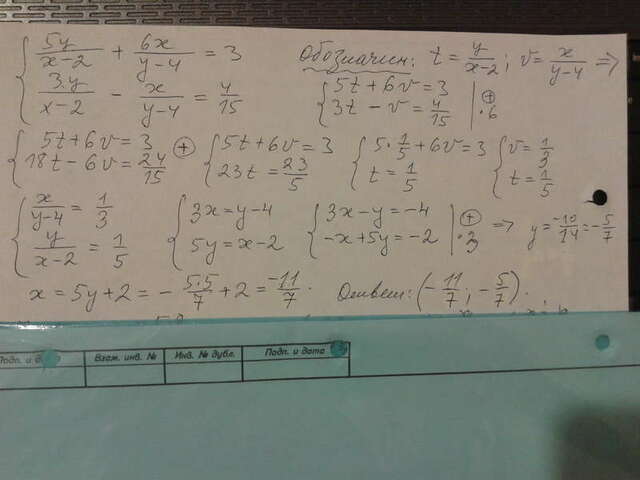 { 5y/(x-2) + 6x/(y-4) = 3   Обозначим: t = y/(x-2); v = x/(y-4) ⇒
{ 3y/(x-2) - x/(y-4) = 4/15   { 5t+6v=3   3t-v=4/15 | ⊕ ·6
{ 5t+6v=3   18t-6v=24/15 ⊕ { 5t+6v=3   23t=23/5   { 5·1/5+6v=3   t=1/5   { v=1/3   t=1/5
{ x/(y-4)=1/3   y/(x-2)=1/5   { 3x=y-4   5y=x-2   { 3x-y=-4   -x+5y=-2 | ⊕ ·3 ⇒ y=-10/14=-5/7
x=5y+2=-5·5/7+2=-11/7.   Ответ: (-11/7; -5/7).
Взам. инв. № Инв. № дубл. Подп. и дата